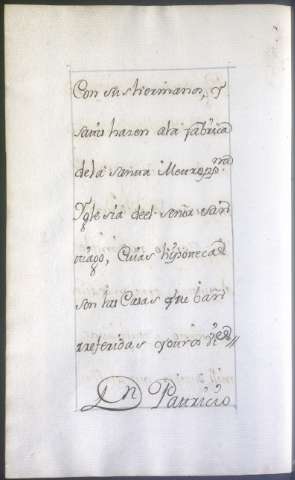 Con sus hermanos, y
haren ala fabrica
dela santa Metrop.na
Yglesia deel señor san
tiago, Cuias hypotecas
son las Casas que ban
rreferidas
Dn Patricio